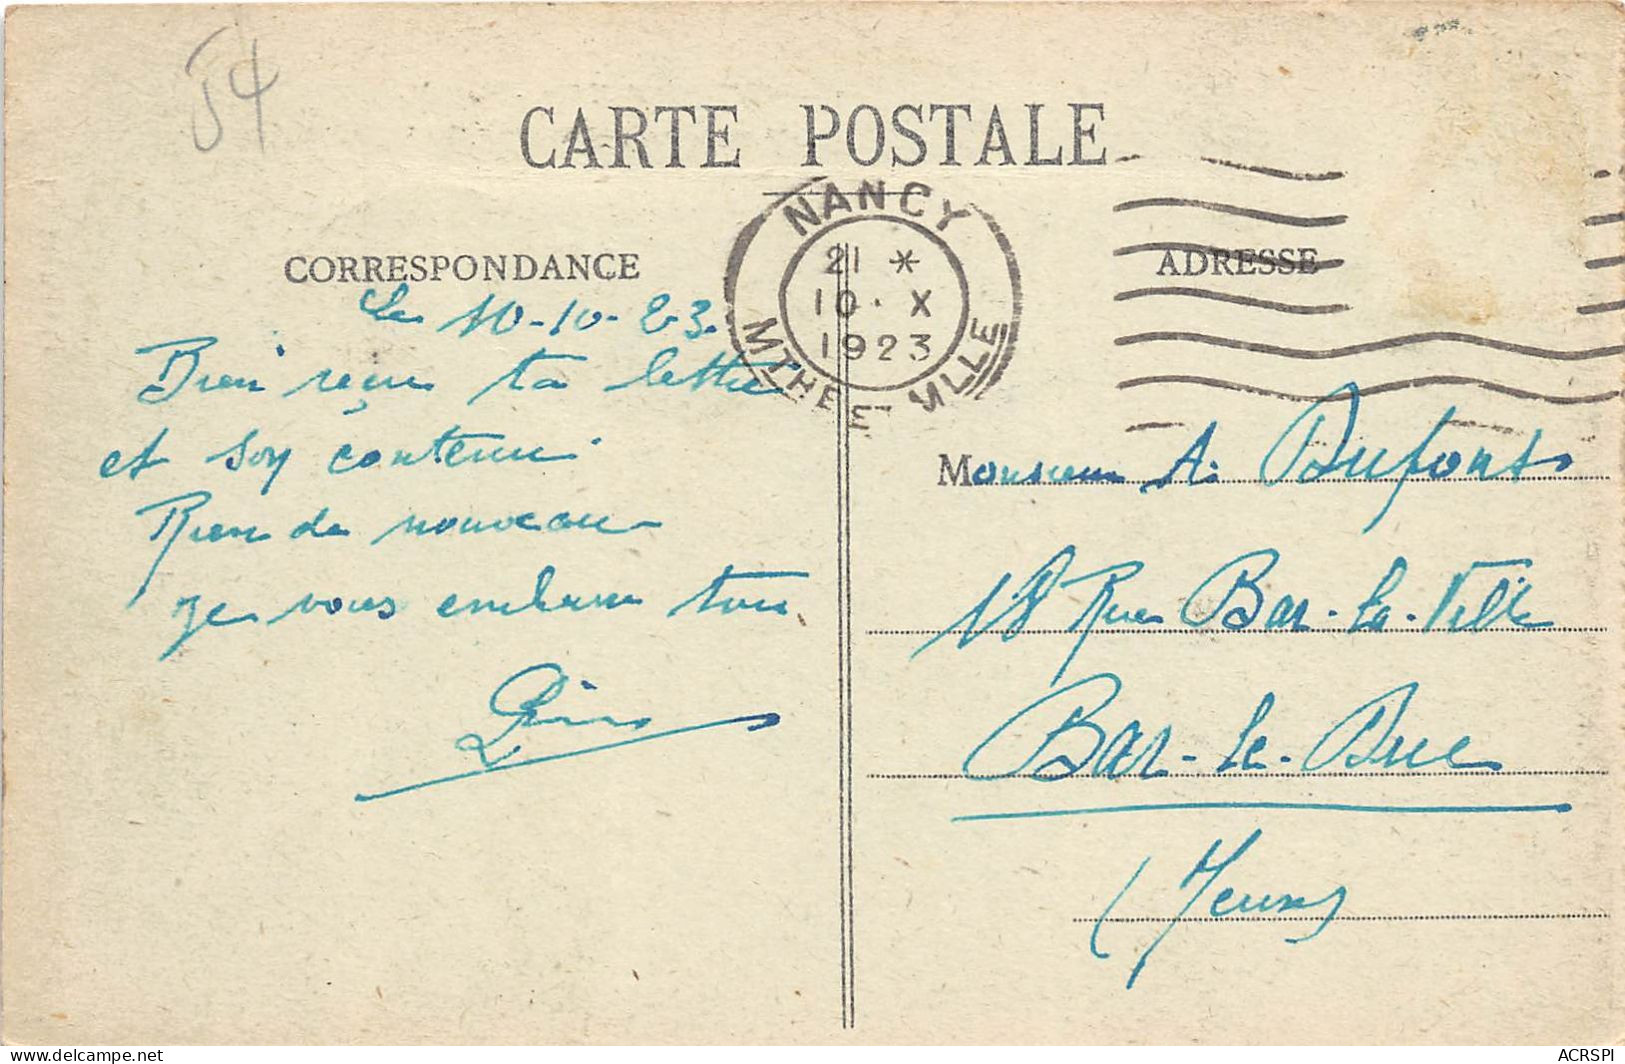 54
CARTE POSTALE
NANCY
21 *
10 · X
1923
MTHE E VILLE
CORRESPONDANCE
ADRESSE
Le 10-10-23.
Bien reçu ta lettre
et son contenu.
Rien de nouveau
Je vous embrasse tous
Monsieur A. Dufour
18 Rue Bar-la-Ville
Bar-le-Duc
(Meuse)
delcampe.net
ACRSPI